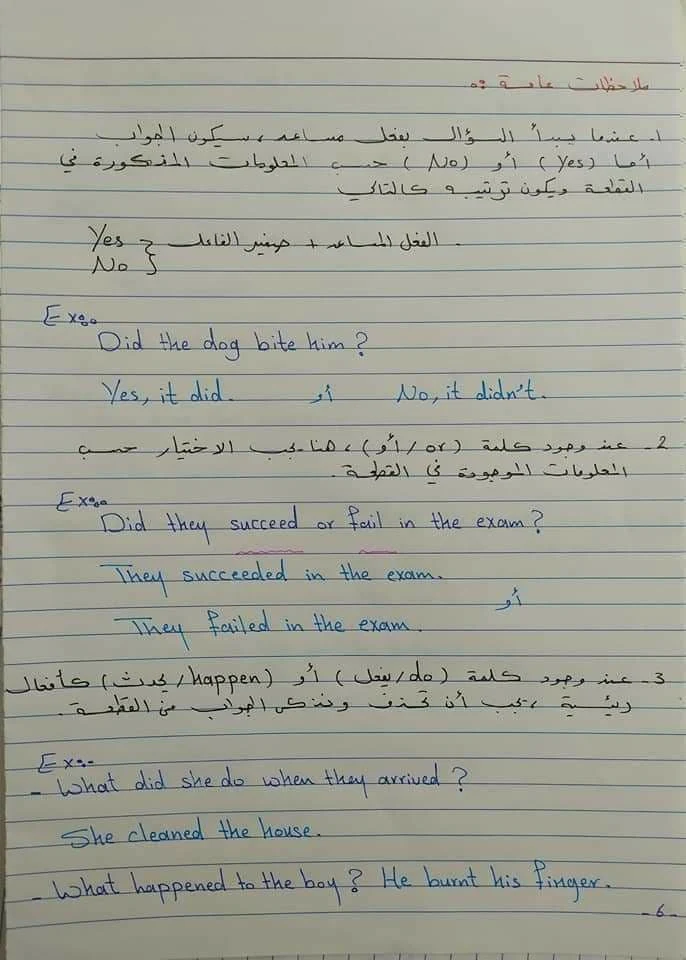 ملاحظات عامة :-
1- عندما يبدأ السؤال بفعل مساعد ، سيكون الجواب
أما (Yes) أو (No) حسب المعلومات المذكورة في
القطعة ويكون ترتيبه كالتالي
Yes } الفعل المساعد + ضمير الفاعل .
No }
Ex:-
Did the dog bite him?
Yes, it did. أو No, it didn't.
2- عند وجود كلمة (or/أو) ، هنا يجب الاختيار حسب
المعلومات الموجودة في القطعة .
Ex:-
Did they succeed or fail in the exam?
They succeeded in the exam.
أو
They failed in the exam.
3- عند وجود كلمة (do/يفعل) أو (happen/يحدث) كأفعال
رئيسية ، يجب أن تحذف ونذكر الجواب من القطعة .
Ex:-
- What did she do when they arrived?
She cleaned the house.
- What happened to the boy? He burnt his finger.
-6-